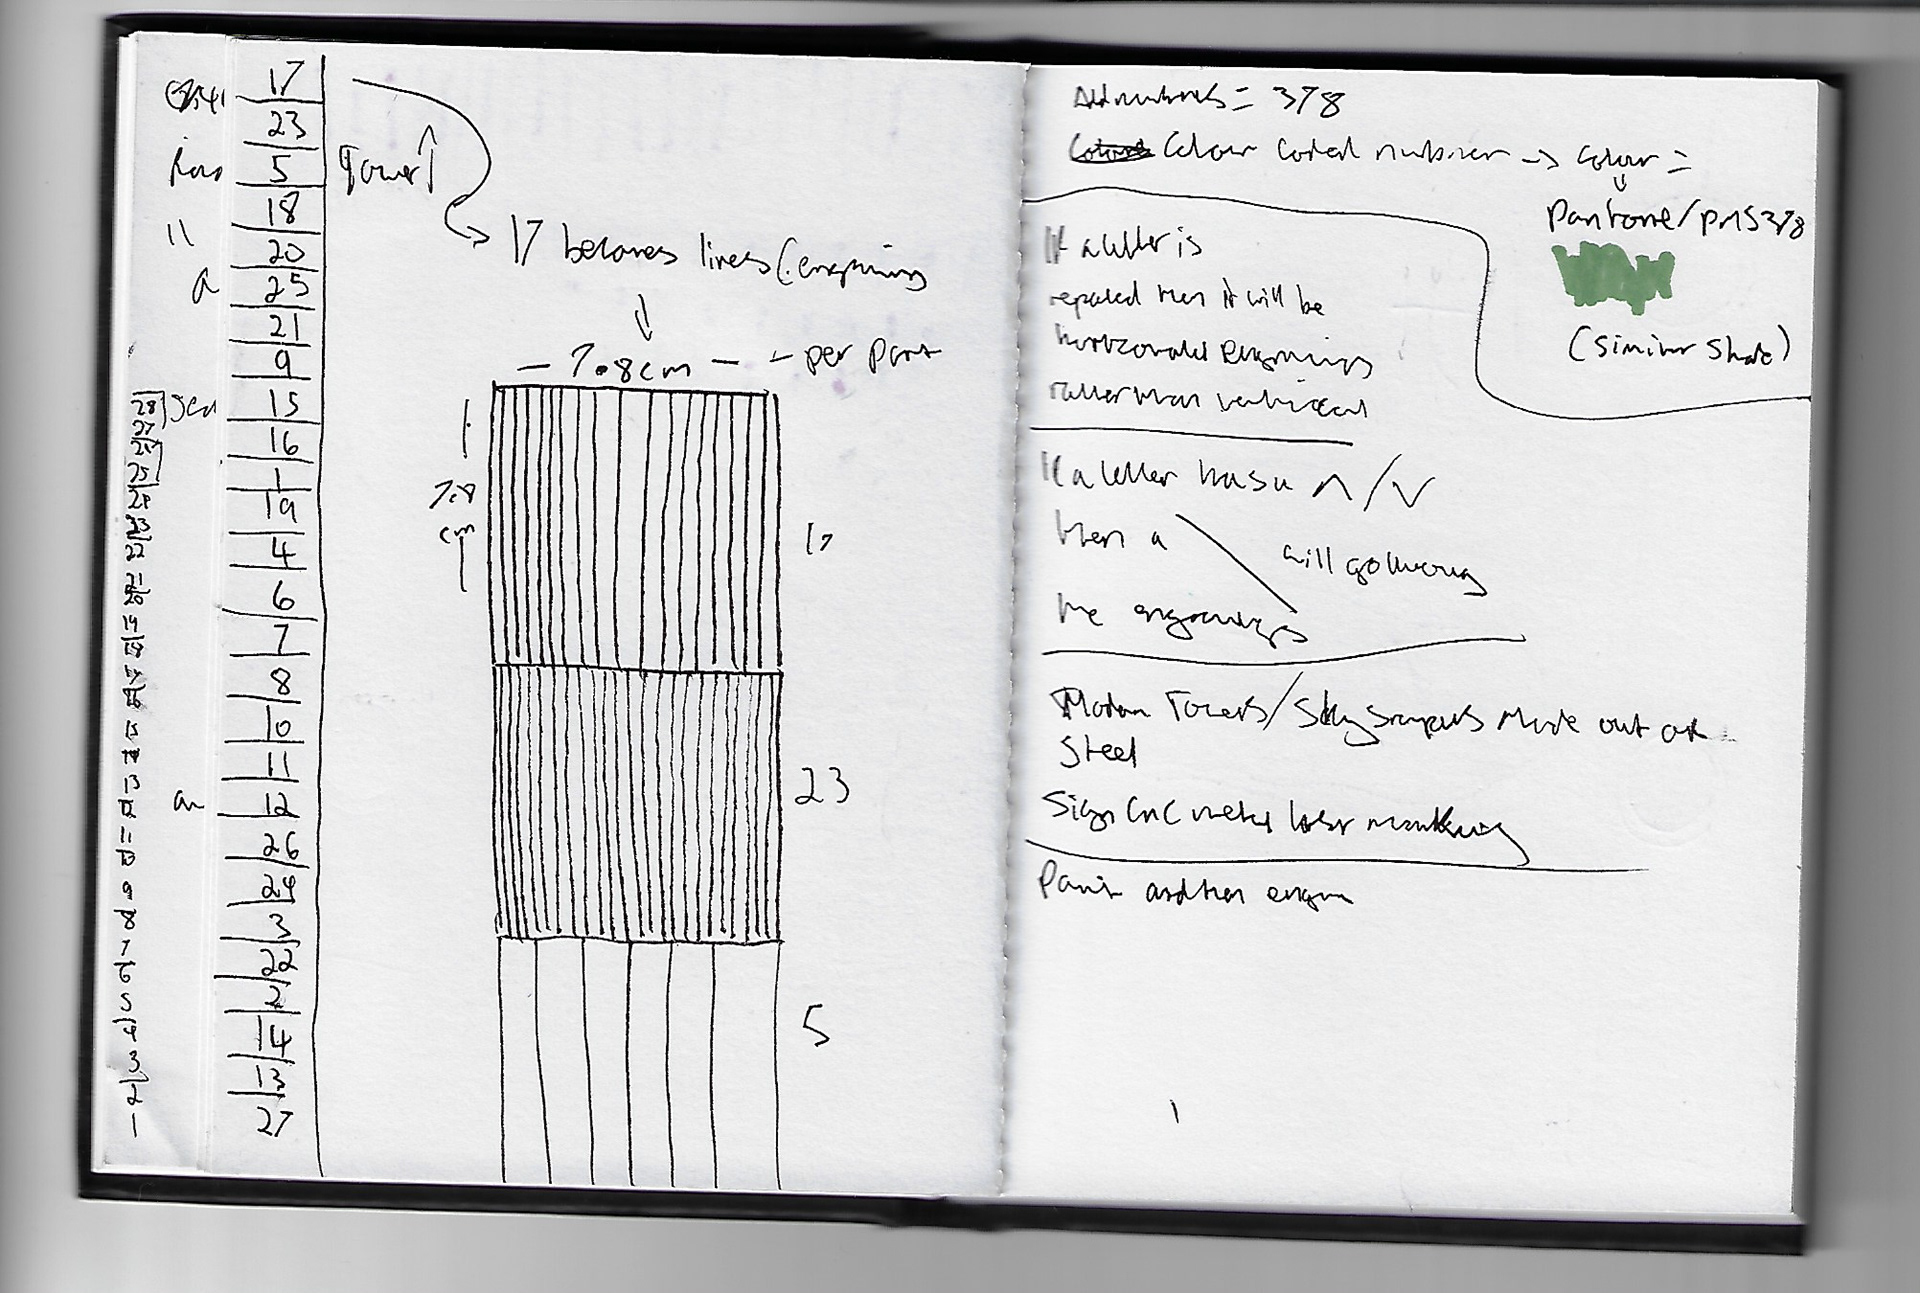 17
23
5
18
20
25
21
9
15
16
1
19
4
6
7
8
10
11
12
26
24
3
22
2
14
13
27
28
27
26
25
24
23
22
21
20
19
18
17
16
15
14
13
12
11
10
9
8
7
6
5
4
3
2
1
Tower
17 becomes lines (engraving
- 7.8cm - - per part
7.8
cm
17
23
5
Add numbers = 378
Colour Coded number → colour =
Pantone/PMS378
(Similar Shade)
If a letter is
repeated then it will be
horizontal engravings
rather than vertical
If a letter has a ∧/∨
then a \ will go through
the engravings
Modern Towers/Skyscrapers Made out of
Steel
Sign CNC metal laser marking
Paint and then engrave